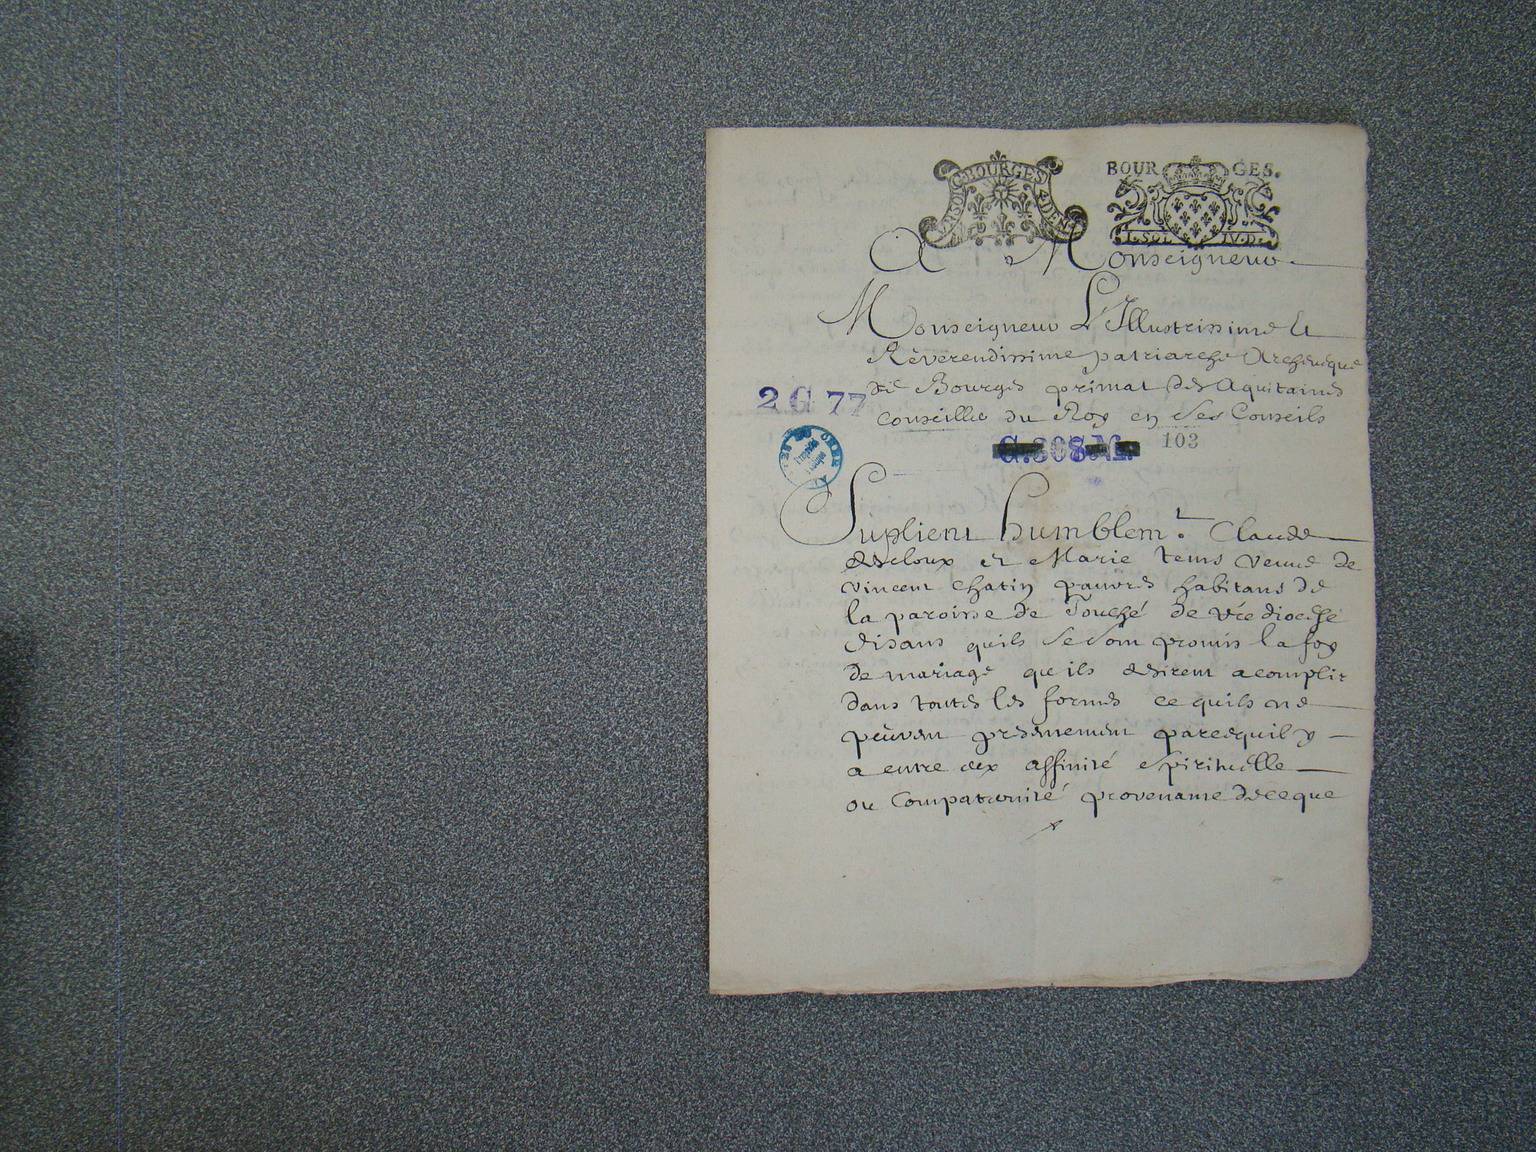 BOURGES
BOURGES.
1. SOL IV. D.
A Monseigneur
Monseigneur L'Illustrissime et
Réverendissime patriarche Archeueque
de Bourges primat des Aquitaines
Conseiller du Roy en Ses Conseils
2 G 77
G. 308 M. 103
Suplient humblemt. Claude
et Marie veuue de
vincent Chatin pauvres habitans de
la paroisse de Touché de vre diocesse
disans quils se Sont promis la foy
de mariage que ils desirent acomplir
dans toutes les formes ce quils ne
peuvent presentement parcequil y
a entre eux affinité Spirituelle
ou Compaternité provenante dece que